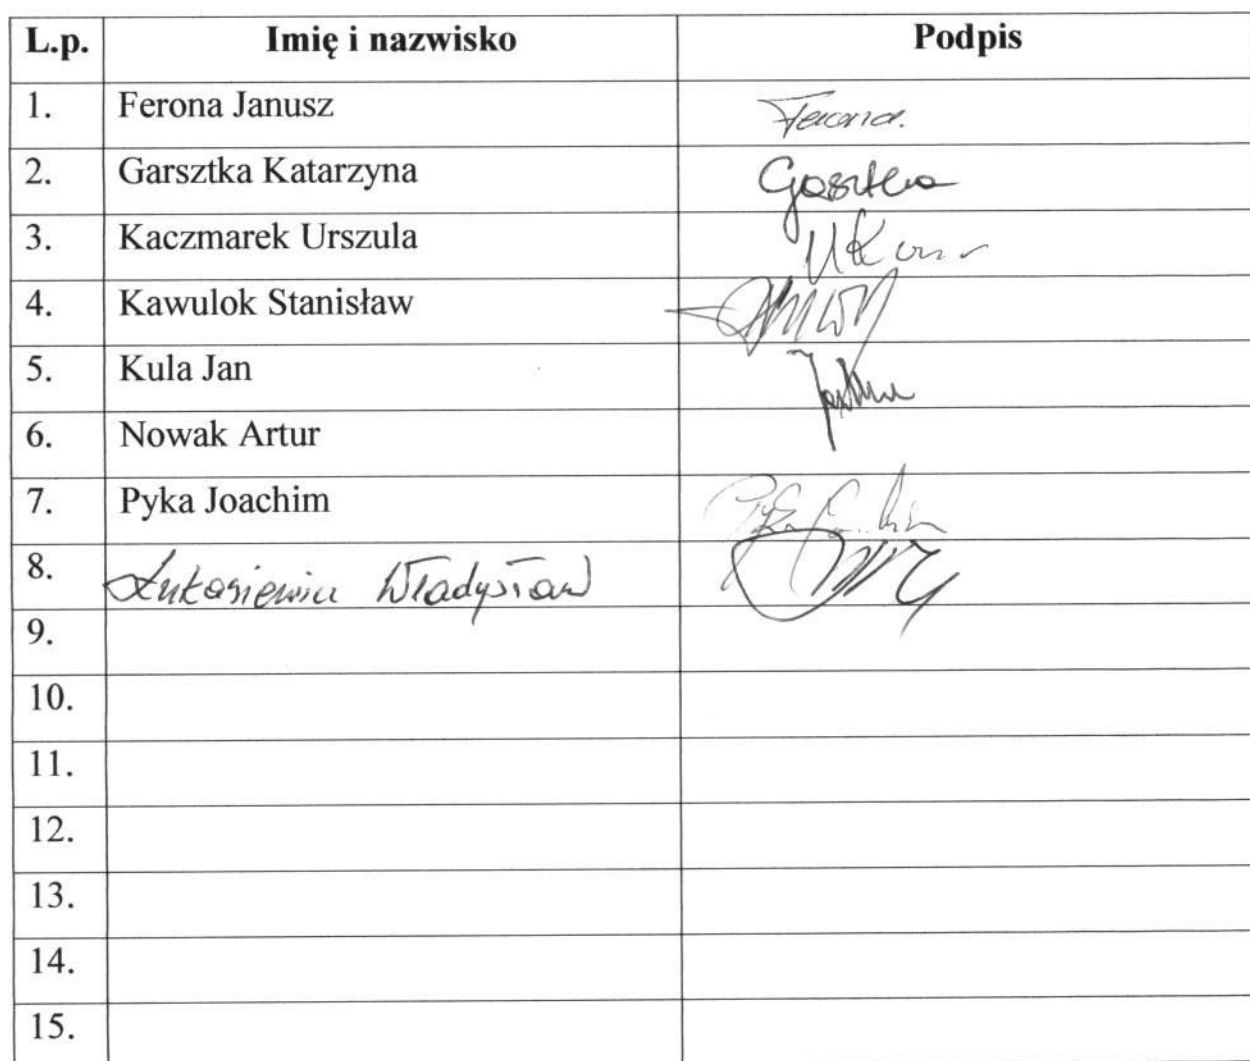 L.p. Imię i nazwisko Podpis
1. Ferona Janusz Ferona.
2. Garsztka Katarzyna
3. Kaczmarek Urszula
4. Kawulok Stanisław
5. Kula Jan
6. Nowak Artur
7. Pyka Joachim
8. Łukasiewicz Władysław
9.
10.
11.
12.
13.
14.
15.